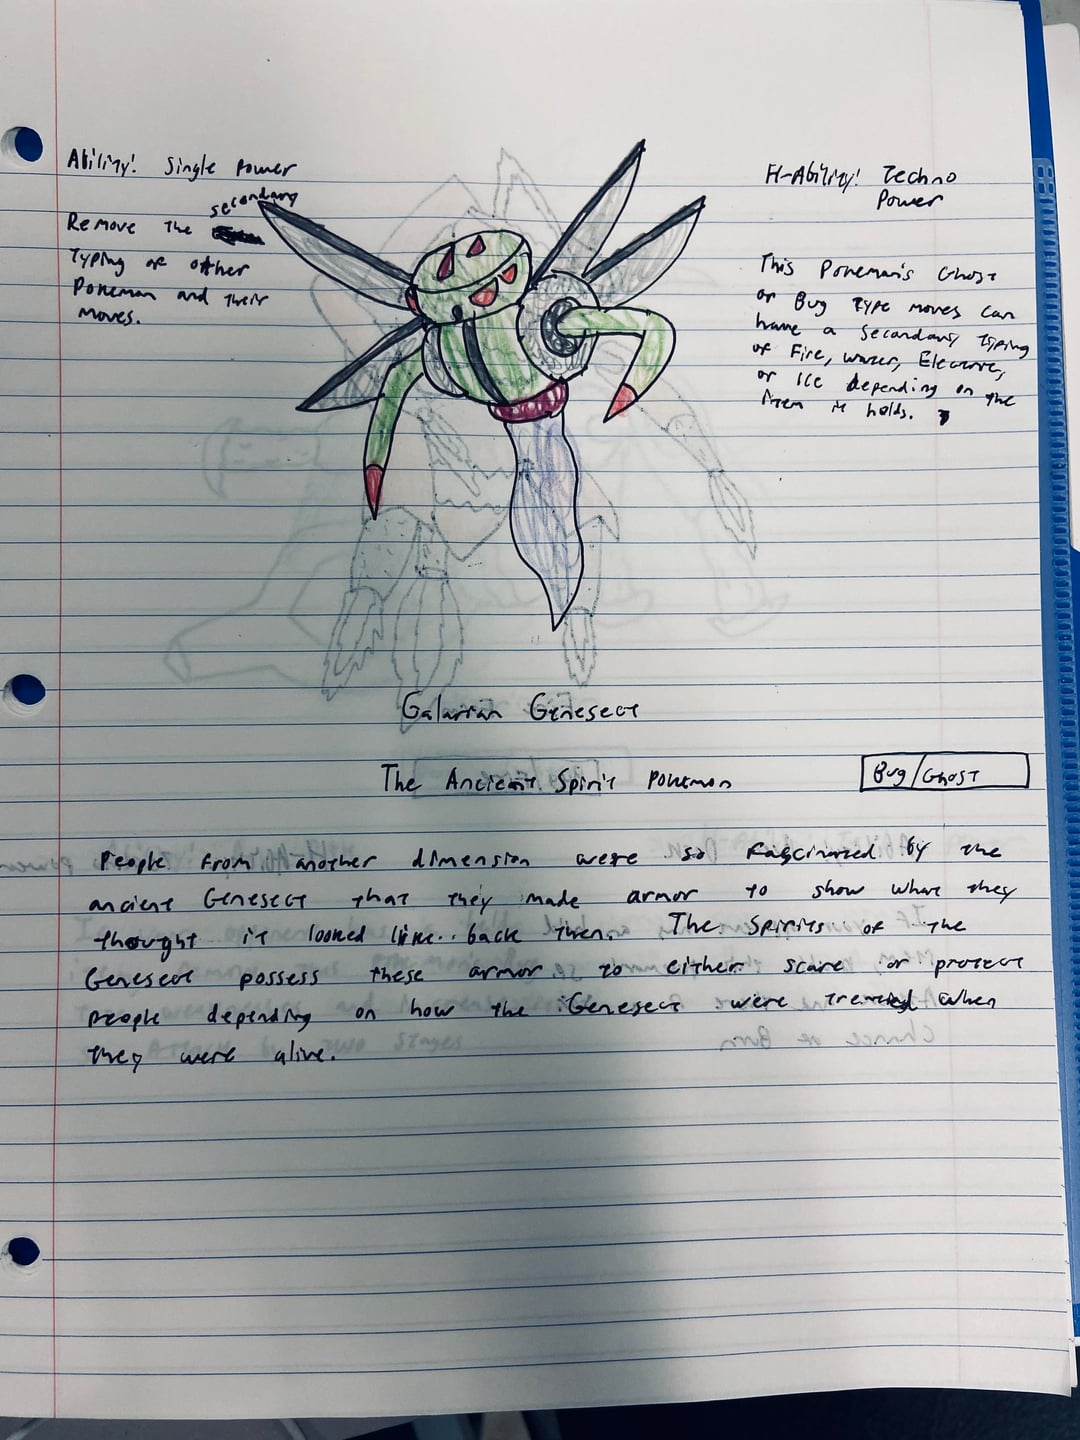 Ability: Single Power
Remove the secondary
Typing of other
Pokemon and their
moves.
H-Ability: Techno
Power
This Pokemon's Ghost
or Bug Type moves can
have a secondary typing
of Fire, Water, Electric,
or Ice depending on the
item it holds.
Galarian Genesect
The Ancient Spirit Pokemon
Bug/Ghost
People from another dimension were so fascinated by the
ancient Genesect that they made armor to show what they
thought it looked like.. back then. The Spirits of the
Genesect possess these armor to either scare or protect
people depending on how the Genesect were treated when
they were alive.